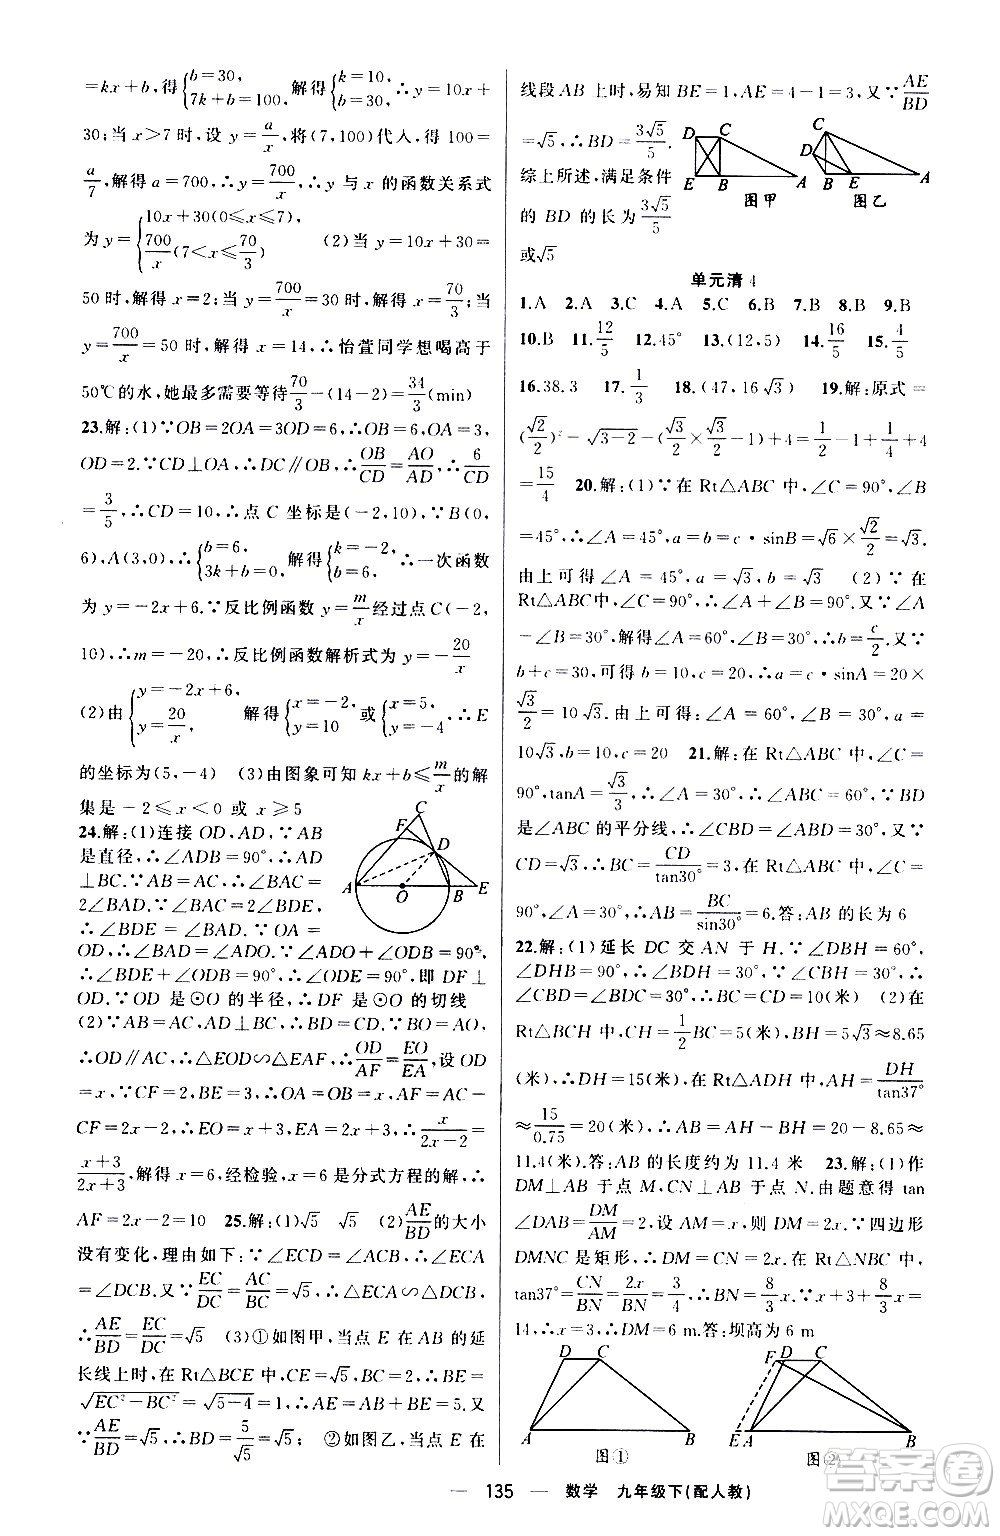 =kx+b,得{b=30, 7k+b=100, 解得{k=10, b=30, ∴y=10x+
30;当 x>7 时,设 y=a/x,将(7,100)代入,得 100=
a/7,解得 a=700,∴y=700/x,∴y 与 x 的函数关系式
为 y={10x+30(0≤x≤7), 700/x(7<x≤70/3) (2)当 y=10x+30=
50 时,解得 x=2;当 y=700/x=30 时,解得 x=70/3;当
y=700/x=50 时,解得 x=14,∴怡萱同学想喝高于
50℃的水,她最多需要等待70/3-(14-2)=34/3(min)
23.解:(1)∵OB=2OA=3OD=6,∴OB=6,OA=3,
OD=2.∵CD⊥OA,∴DC∥OB,∴OB/CD=AO/AD,∴6/CD
=3/5,∴CD=10,∴点 C 坐标是(-2,10),∵B(0,
6),A(3,0),∴{b=6, 3k+b=0, 解得{k=-2, b=6, ∴一次函数
为 y=-2x+6.∵反比例函数 y=m/x经过点 C(-2,
10),∴m=-20,∴反比例函数解析式为 y=-20/x
(2)由{y=-2x+6, y=-20/x, 解得{x=-2, y=10 或{x=5, y=-4, ∴E
的坐标为(5,-4) (3)由图象可知 kx+b≤m/x的解
集是-2≤x<0 或 x≥5
24.解:(1)连接 OD,AD,∵AB
是直径,∴∠ADB=90°,∴AD
⊥BC.∵AB=AC,∴∠BAC=
2∠BAD.∵∠BAC=2∠BDE,
∴∠BDE=∠BAD.∵OA=
OD,∴∠BAD=∠ADO.∵∠ADO+∠ODB=90°,
∴∠BDE+∠ODB=90°,∴∠ODE=90°,即 DF⊥
OD.∵OD 是⊙O 的半径,∴DF 是⊙O 的切线
(2)∵AB=AC,AD⊥BC,∴BD=CD.∵BO=AO,
∴OD∥AC,∴△EOD∽△EAF,∴OD/AF=EO/EA,设 OD=
x,∵CF=2,BE=3,∴OA=OB=x,AF=AC-
CF=2x-2,∴EO=x+3,EA=2x+3,∴x/2x-2=
x+3/2x+3,解得 x=6,经检验,x=6 是分式方程的解,∴
AF=2x-2=10 25.解:(1)√5 √5 (2)AE/BD的大小
没有变化,理由如下:∵∠ECD=∠ACB,∴∠ECA
=∠DCB.又∵EC/DC=AC/BC=√5,∴△ECA∽△DCB,
∴AE/BD=EC/DC=√5 (3)①如图甲,当点 E 在 AB 的延
长线上时,在 Rt△BCE 中,CE=√5,BC=2,∴BE=
√EC²-BC²=√5-4=1,∴AE=AB+BE=5.又
∵AE/BD=√5,∴BD=5/√5=√5 ②如图乙,当点 E 在
线段 AB 上时,易知 BE=1,AE=4-1=3,又∵AE/BD
=√5,∴BD=3√5/5.
综上所述,满足条件
的 BD 的长为3√5/5
或√5
D C E B A 图甲
C D B E A 图乙
C F D A O B E
单元清 4
1.A 2.A 3.C 4.A 5.C 6.B 7.B 8.B 9.B
10.B 11.12/5 12.45° 13.(12,5) 14.16/5 15.4/5
16.38.3 17.1/3 18.(47,16√3) 19.解:原式=
(√2/2)²-√3-2-√3/2×(√3/2×√3/2-1)+4=
15/4 20.解:(1)∵在 Rt△ABC 中,∠C=90°,∠B
=45°,∴∠A=45°,a=b=c·sinB=√6×√2/2=√3.
由上可得∠A=45°,a=b=√3 (2)∵在
Rt△ABC中,∠C=90°,∴∠A+∠B=90°.∵∠A
-∠B=30°,解得∠A=60°,∠B=30°,∴b=c/2.∵
b+c=30,可得 b=10,c=20,∴a=c·sinA=20×
√3/2=10√3.由上可得:∠A=60°,∠B=30°,a=
10√3,b=10,c=20 21.解:在 Rt△ABC 中,∠C=
90°,tanA=√3/3,∴∠A=30°,∴∠ABC=60°,∵BD
是∠ABC 的平分线,∴∠CBD=∠ABD=30°.∵
CD=√3,∴BC=CD/tan30°=3,在 Rt△ABC 中,∠C=
90°,∠A=30°,∴AB=BC/sin30°=6.答:AB 的长为 6
22.解:(1)延长 DC 交 AN 于 H.∵∠DBH=60°,
∠DHB=90°,∴∠BDH=30°.∵∠CBH=30°,∴
∠CBD=∠BDC=30°,∴BC=CD=10(米) (2)在
Rt△BCH 中,CH=1/2BC=5(米),BH=5√3≈8.65
(米),∴DH=15(米),在 Rt△ADH 中,AH=DH/tan37°
≈15/0.75=20(米),∴AB=AH-BH=20-8.65≈
11.4(米).答:AB 的长度约为 11.4 米 23.解:(1)作
DM⊥AB 于点 M,CN⊥AB 于点 N.由题意得 tan
∠DAB=DM/AM=2,设 AM=x,则 DM=2x,∵四边形
DMNC 是矩形,∴DM=CN=2x.在 Rt△NBC 中,
tan37°=CN/BN=2x/BN=3/4,∴BN=8/3x,∵x+3+8/3x=
14,∴x=3,∴DM=6 m.答:坝高为 6 m
D C A B 图①
F D C E A B 图②
— 135 — 数学 九年级下(配人教)
答案圈
MXQE.COM